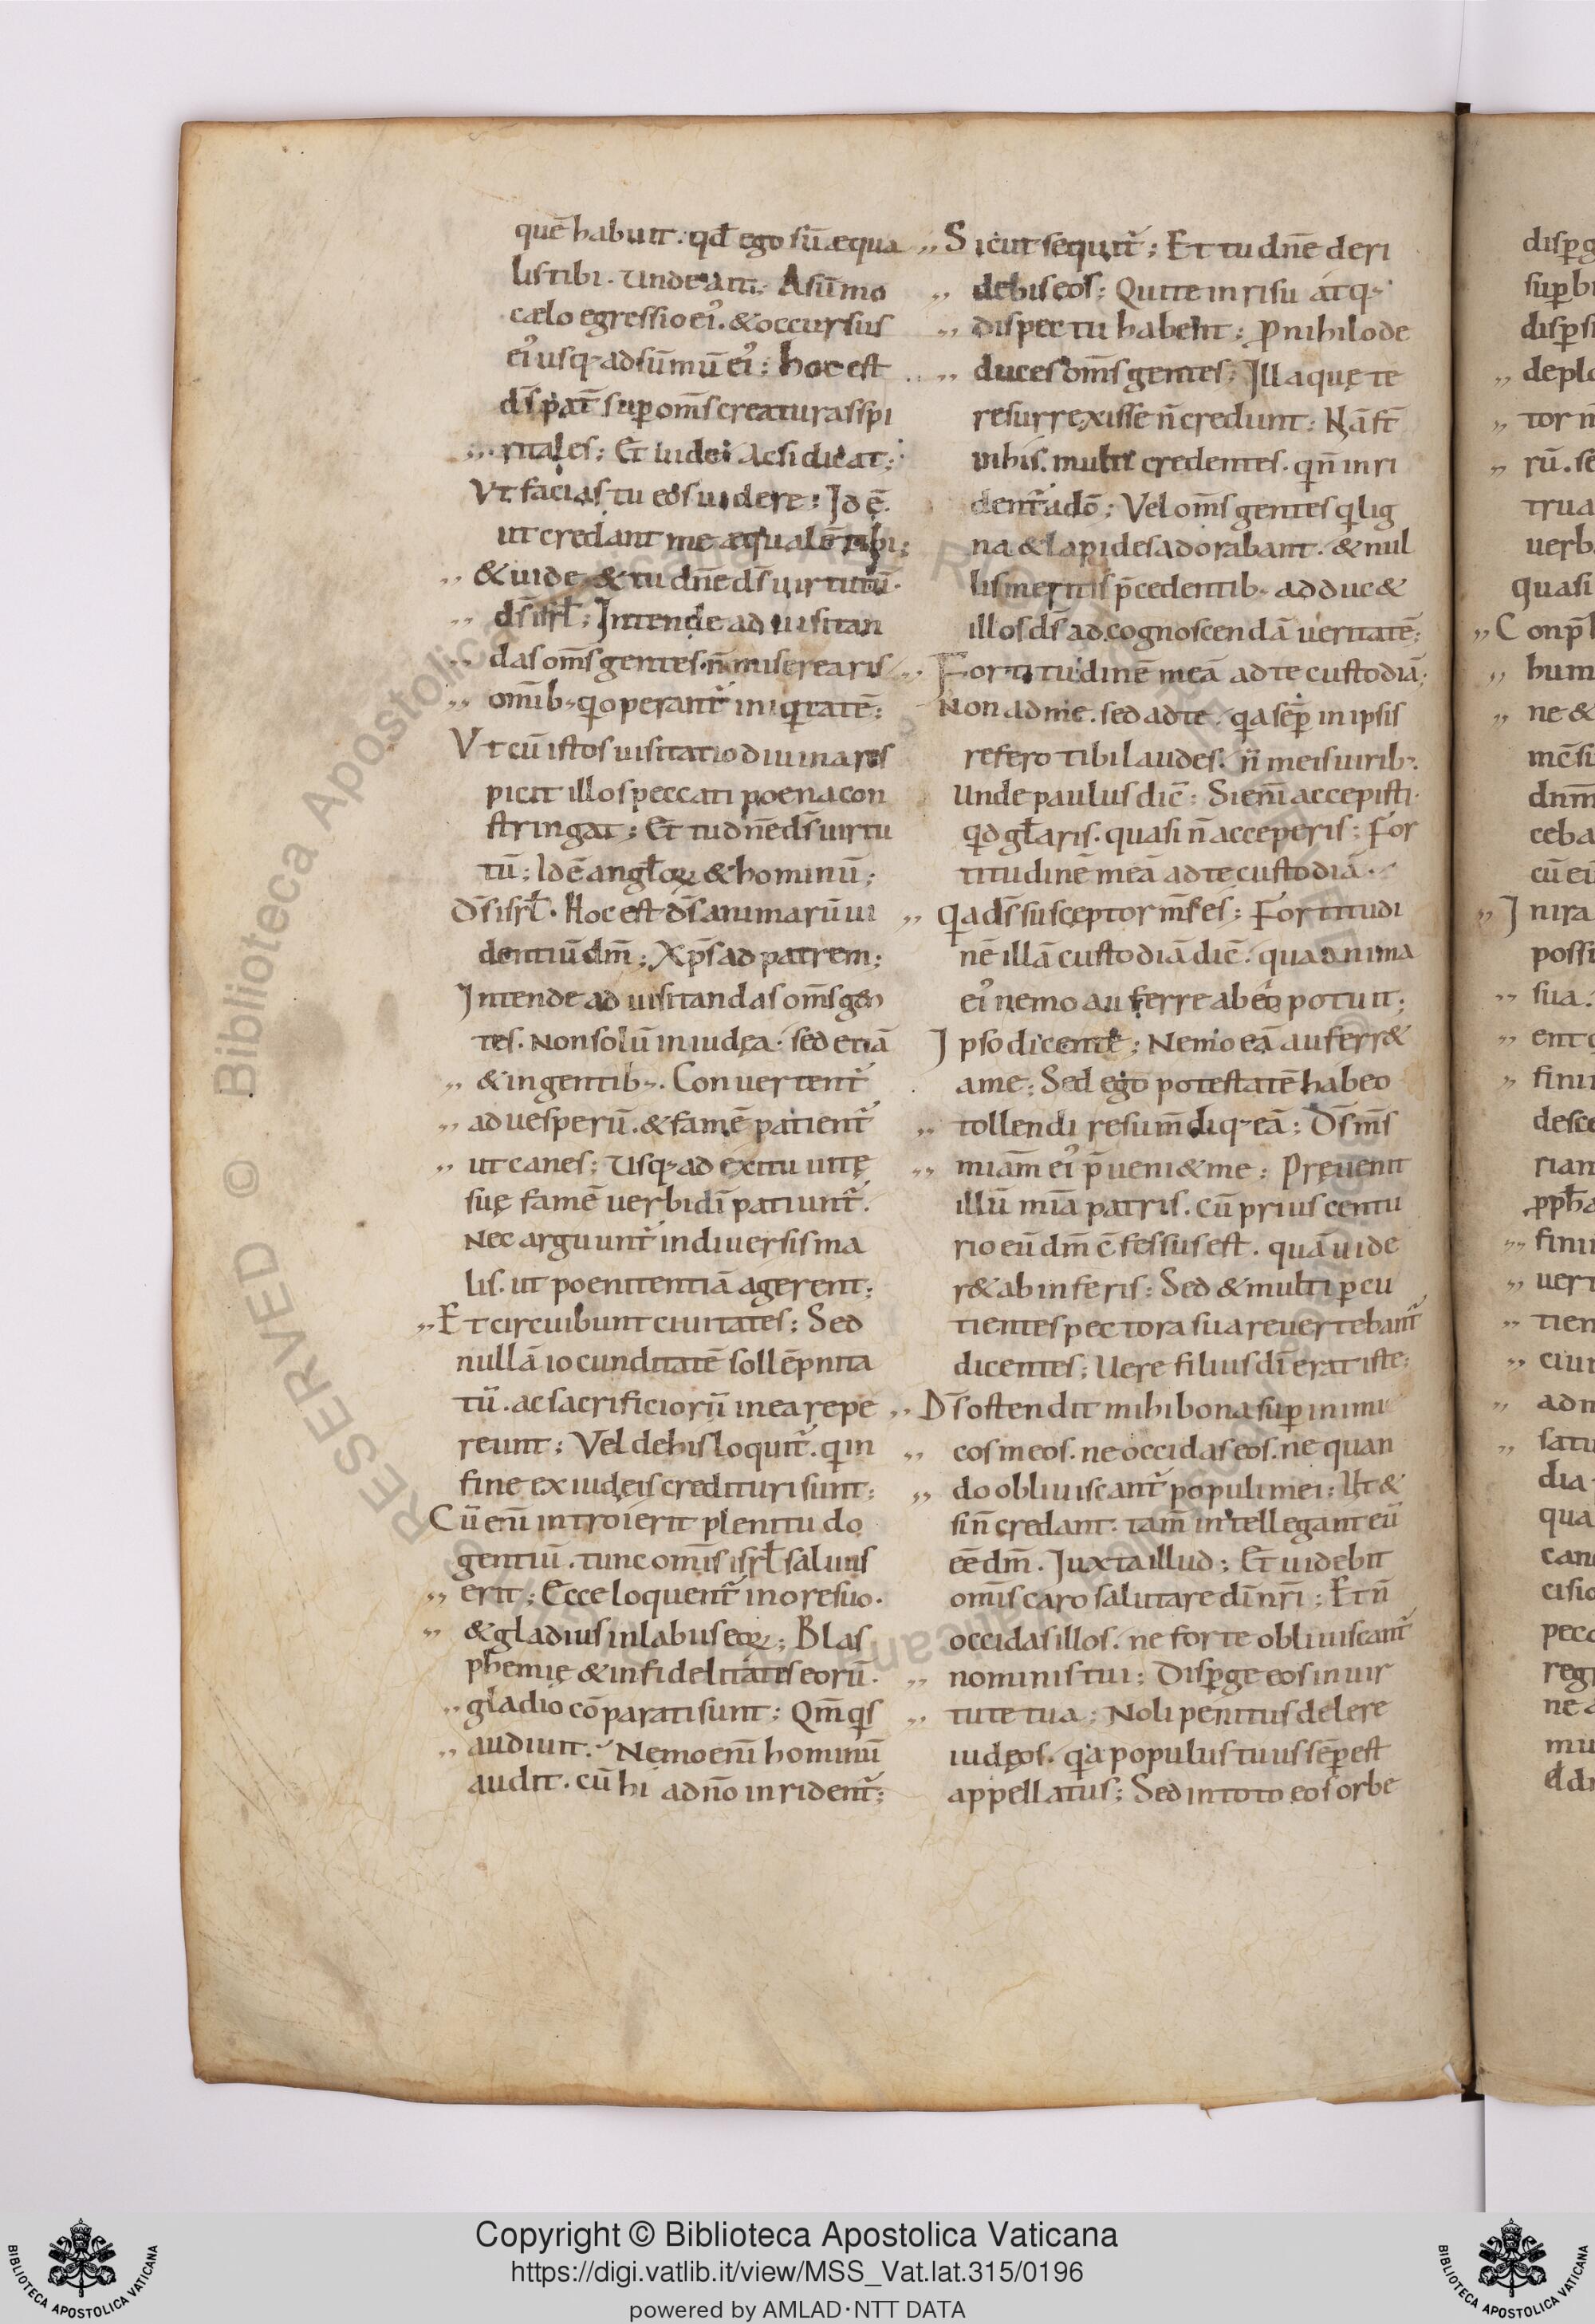 quē habuit. qđ ego sū æqua
lis tibi. Unde ait. A sūmo
cælo egressio ei᾽. & occursus
ei᾽ usq; ad sūmū ei᾽; hoc est
d̄s pat̄ sup om̄s creaturas spi
ritales; Et iudei Ac si dicat;
Ut facias tu eos uidere; Id ē.
ut credant me æqualē tibi;
,, & uide & tu dn̄e d̄s uirtutū.
,, d̄s isrł; Intende ad uisitan
,, das om̄s gentes. n̄ miserearis
,, omīb; qi operant᷑ iniqitatē;
Ut cū istos uisitatio diuina res
picit illos peccati poena con
stringat; Et tu dn̄e d̄s uirtu
tū; Id ē angłoꝝ & hominū;
D̄s isrł. Hoc est d̄s animarū ui
dentiū dm̄; Xp̄s ad patrem;
Intende ad uisitandas om̄s gen
tes. Non solū in iudęa. sed etiā
,, & in gentib;. Conuertent᷑
,, ad uesperū. & famē patient᷑
,, ut canes; Usq; ad exitū uitę
suę famē uerbi dī patiunt᷑.
Nec arguunt᷑ in diuersis ma
lis. ut poenitentiā agerent;
,, Et circuibunt ciuitates; Sed
nullā iocunditatē sollēpnita
tū. ac sacrificiorū in ea repe
reunt; Vel de his loquit᷑. qi in
fine ex iudęis credituri sunt;
Cū enī introierit plenitudo
gentiū. tunc om̄is isrł saluus
,, erit; Ecce loquent᷑ in ore suo.
,, & gladius in labiis eoꝝ; Blas
phemię & infidelitates eorū.
,, gladio cōparati sunt; Qm̄ qis
,, audiuit. Nemo enī hominū
audit. cū hi a dn̄o inrident᷑;
,, Sicut sequit᷑; Et tu dn̄e deri
,, debis eos; Qui te in risu atq;
,, dispectu habent; ꝓ nihilo de
,, duces om̄s gentes; Illa quę te
resurrexisse n̄ credunt; Nā st̄
in his. multi credentes. qi n̄ inri
dent᷑ a dō; Vel om̄s gentes qi lig
na & lapides adorabant. & nul
lis meritis p̄cedentib; adduc &
illos d̄s ad cognoscendā ueritatē;
,, Fortitudinē meā ad te custodiā;
Non ad me. sed ad te. qia sēp in ipsis
refero tibi laudes. n̄ meis uirib;.
Unde paulus dic̄; Si enī accepisti.
qid głaris. quasi n̄ acceperis; For
titudinē meā ad te custodiā.
,, Qia d̄s susceptor m̄s es; Fortitudi
nē illā custodiā dic̄. qua anima
ei᾽ nemo auferre ab eo potuit;
Ipso dicente; Nemo eā auferr&
a me; Sed ego potestatē habeo
,, tollendi resum̄diq; eā; D̄s m̄s
,, mīam ei᾽ p̄ueni& me; Pręuenit
illū mīa patris. cū prius centu
rio eū dm̄ c̄fessus est. quā uide
r& ab inferis; Sed & multi pcu
tientes pectora sua reuertebant᷑
dicentes; Uere filius dī erat iste;
,, D̄s ostendit mihi bona sup inimi
,, cos meos. ne occidas eos. ne quan
,, do obliuiscant᷑ populi mei; Ut &
si n̄ credant. tam̄ intellegant eū
eē dm̄. Iuxta illud; Et uidebit
om̄is caro salutare dī nr̄i; Et n̄
occidas illos. ne forte obliuiscant᷑
,, nominis tui; Disp̱ge eos in uir
,, tute tua; Noli penitus delere
iudęos. qia populus tuus sēp est
appellatus; Sed in toto eos orbe
Copyright © Biblioteca Apostolica Vaticana
https://digi.vatlib.it/view/MSS_Vat.lat.315/0196
powered by AMLAD·NTT DATA